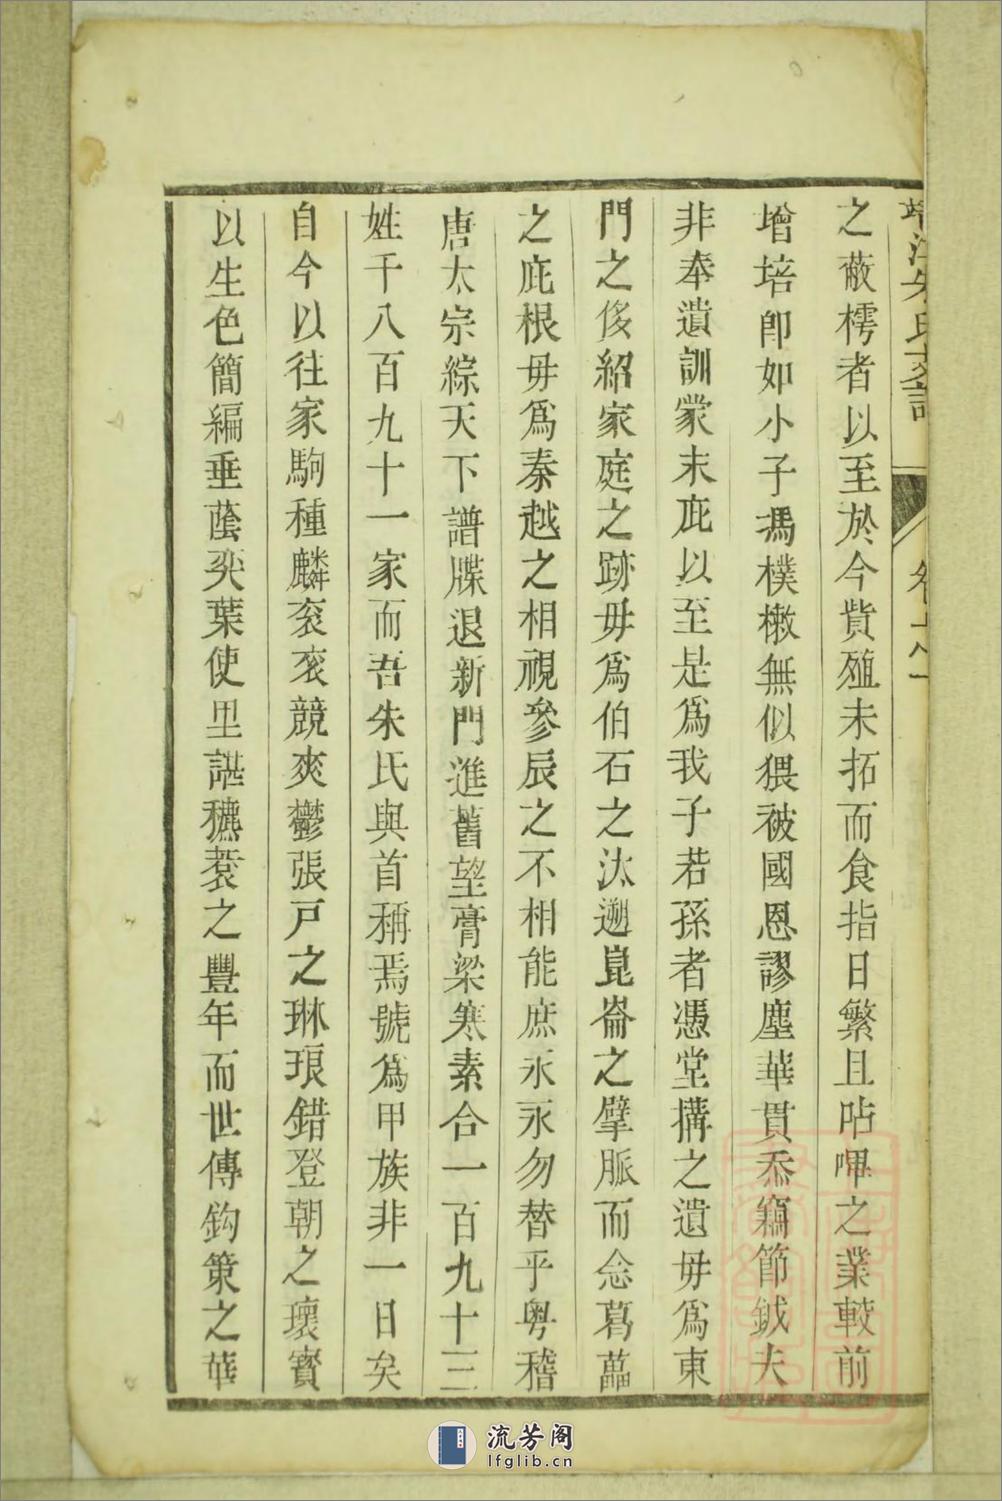 之蔽樗者以至於今貲殖未拓而食指日繁且呫嗶之業較前
增培卽如小子馮樸樕無似猥被國恩謬塵華貫忝竊節鉞夫
非奉遺訓蒙末庇以至是爲我子若孫者憑堂搆之遺毋爲東
門之侈紹家庭之跡毋爲伯石之汰遡崑崙之擘脈而念葛藟
之庇根毋爲秦越之相視參辰之不相能庶永永勿替乎粵稽
唐太宗綜天下譜牒退新門進舊望膏梁寒素合一百九十三
姓千八百九十一家而吾朱氏與首稱焉號爲甲族非一日矣
自今以往家駒種麟袞袞競爽鬱張戸之琳琅錯登朝之瓌寳
以生色簡編垂蔭奕葉使里諶穮蓘之豐年而世傳鈎策之華
流芳阁
lfglib.cn